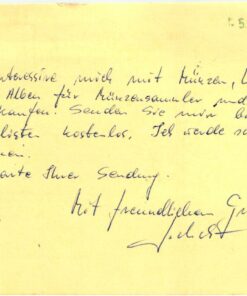 5.
nteressive mich mit Münzen,
Alben für Münzensammler und
kaufen. Senden Sie mir b
listen kostenlos. Ich werde s
nen.
arte Ihrer Sendung.
Mit freundlichen Gr